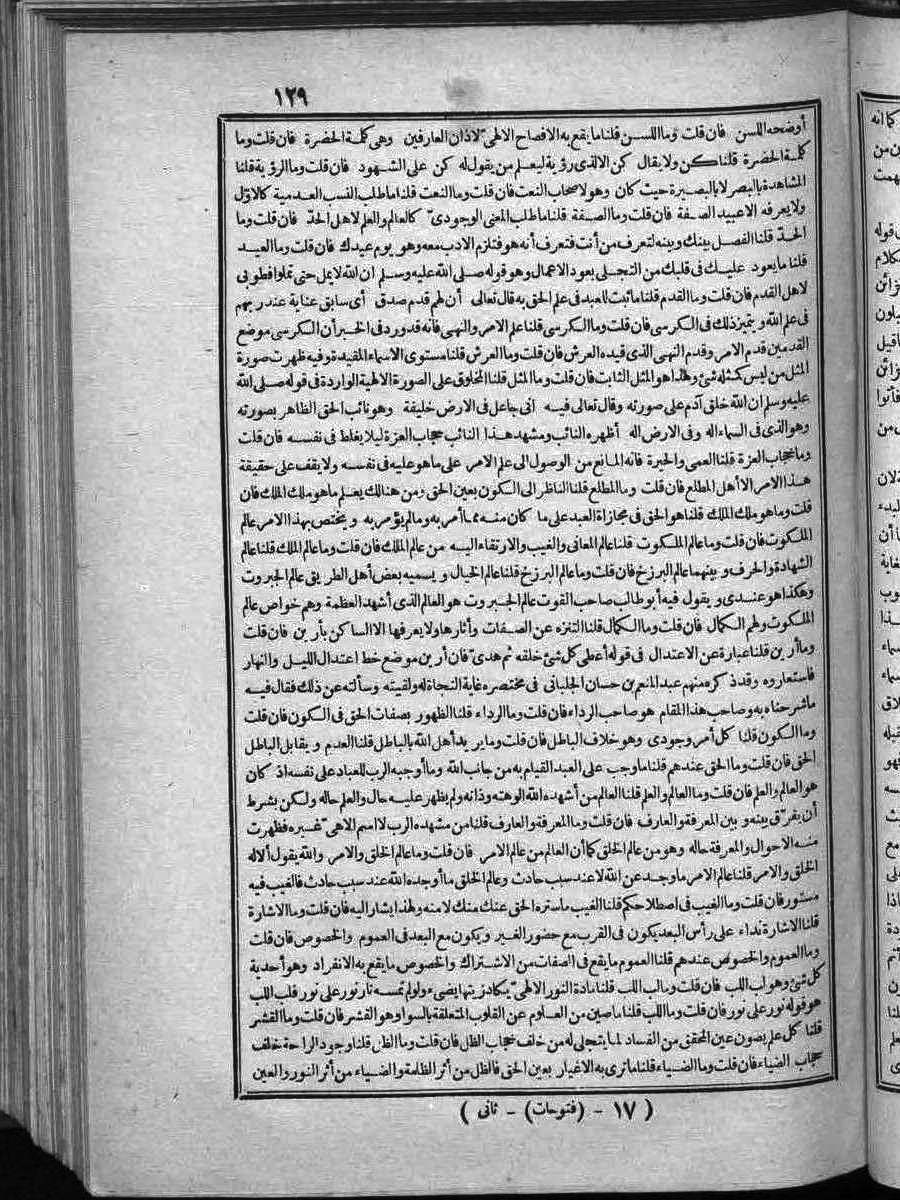 ١٢٩
أوضحه اللسن فان قلت وما اللسن قلنا ما يقع به الافصاح الالهى لآذان العارفين وهى كلمة الحضرة فان قلت وما
كلمة الحضرة قلنا كن ولا يقال كن الا لذى رؤية ليعلم من يقول له كن على الشهود فان قلت وما الرؤية قلنا
المشاهدة بالبصر لا بالبصيرة حيث كان وهو لاصحاب النعت فان قلت وما النعت قلنا ما طلب النسب العدمية كالاوّل
ولا يعرفه الا عبيد الصفة فان قلت وما الصفة قلنا ما طلب المعنى الوجودىّ كالعالم والعلم لاهل الحدّ فان قلت وما
الحدّ قلنا الفصل بينك وبينه لتعرف من أنت فتعرف أنه هو فتلزم الادب معه وهو يوم عيدك فان قلت وما العيد
قلنا ما يعود عليك فى قلبك من التجلى بعود الاعمال وهو قوله صلى الله عليه وسلم ان الله لا يمل حتى تملوا فطوبى
لاهل القدم فان قلت وما القدم قلنا ما ثبت للعبد فى علم الحق به قال تعالى أن لهم قدم صدق أى سابق عناية عند ربهم
فى علم الله ويتميز ذلك فى الكرسى فان قلت وما الكرسى قلنا علم الامر والنهى فانه قد ورد فى الخبر أن الكرسى موضع
القدمين قدم الامر وقدم النهى الذى قيده العرش فان قلت وما العرش قلنا مستوى الاسماء المقيدة وفيه ظهرت صورة
المثل من ليس كمثله شئ وهذا هو المثل الثابت فان قلت وما المثل قلنا المخلوق على الصورة الالهية الواردة فى قوله صلى الله
عليه وسلم ان الله خلق آدم على صورته وقال تعالى فيه انى جاعل فى الارض خليفة وهو نائب الحق الظاهر بصورته
وهو الذى فى السماء اله وفى الارض اله أظهره النائب ومشهد هذا النائب حجاب العزة ليلا يغلط فى نفسه فان قلت
وما حجاب العزة قلنا العمى والحيرة فانه المانع من الوصول الى علم الامر على ما هو عليه فى نفسه ولا يقف على حقيقة
هذا الامر الا أهل المطلع فان قلت وما المطلع قلنا الناظر الى الكون بعين الحق ومن هنالك يعلم ما هو ملك الملك فان
قلت وما هو ملك الملك قلنا هو الحق فى مجازاة العبد على ما كان منه مما أمر به وما لم يؤمر به ويختص بهذا الامر عالم
الملكوت فان قلت وما عالم الملكوت قلنا عالم المعانى والغيب والارتقاء اليه من عالم الملك فان قلت وما عالم الملك قلنا عالم
الشهادة والحرف وبينهما عالم البرزخ فان قلت وما عالم البرزخ قلنا عالم الخيال ويسميه بعض أهل الطريق عالم الجبروت
وهكذا هو عندى ويقول فيه أبو طالب صاحب القوت عالم الجبروت هو العالم الذى أشهد العظمة وهم خواص عالم
الملكوت ولهم الكمال فان قلت وما الكمال قلنا التنزه عن الصفات وآثارها ولا يعرفها الا الساكن بأرين فان قلت
وما أرين قلنا عبارة عن الاعتدال فى قوله أعطى كل شئ خلقه ثم هدى فان أرين موضع خط اعتدال الليل والنهار
فاستعاروه وقد ذكره منهم عبد المنعم بن حسان الجليانى فى مختصره غاية النجاة له ولقيته وسألته عن ذلك فقال فيه
ما شرحناه به وصاحب هذا المقام هو صاحب الرداء فان قلت وما الرداء قلنا الظهور بصفات الحق فى الكون فان قلت
وما الكون قلنا كل أمر وجودى وهو خلاف الباطل فان قلت وما يريد أهل الله بالباطل قلنا العدم ويقابل الباطل
الحق فان قلت وما الحق عندهم قلنا ما وجب على العبد القيام به من جانب الله وما أوجبه الرب للعباد على نفسه اذ كان
هو العالم والعلم فان قلت وما العالم والعلم قلنا العالم من أشهده الله الوهته وذاته ولم يظهر عليه حال والعلم حاله ولكن بشرط
أن يفرّق بينه وبين المعرفة والعارف فان قلت وما المعرفة والعارف قلنا من مشهده الرب لا اسم الاهىّ غيره فظهرت
منه الاحوال والمعرفة حاله وهو من عالم الخلق كما أن العالم من عالم الامر فان قلت وما عالم الخلق والامر والله يقول ألا له
الخلق والامر قلنا عالم الامر ما وجد عن الله لا عند سبب حادث وعالم الخلق ما أوجده الله عند سبب حادث فالغيب فيه
مستور فان قلت وما الغيب فى اصطلاحكم قلنا الغيب ما ستره الحق عنك منك لا منه ولهذا يشار اليه فان قلت وما الاشارة
قلنا الاشارة نداء على رأس البعد يكون فى القرب مع حضور الغير ويكون مع البعد فى العموم والخصوص فان قلت
وما العموم والخصوص عندهم قلنا العموم ما يقع فى الصفات من الاشتراك والخصوص ما يقع به الانفراد وهو أحدية
كل شئ وهو لب اللب فان قلت وما لب اللب قلنا مادة النور الالهىّ يكاد زيتها يضىء ولو لم تمسسه نار نور على نور فلب اللب
هو قوله نور على نور فان قلت وما اللب قلنا ما صين من العلوم عن القلوب المتعلقة بالسوا وهو القشر فان قلت وما القشر
قلنا كل علم يصون عين المحقق من الفساد لما يتجلى له من خلف حجاب الظل فان قلت وما الظل قلنا وجود الراحة خلف
حجاب الضياء فان قلت وما الضياء قلنا ما ترى به الاغيار بعين الحق فالظل من أثر الظلمة والضياء من أثر النور والعين
( ١٧ - (فتوحات) - ثانى )